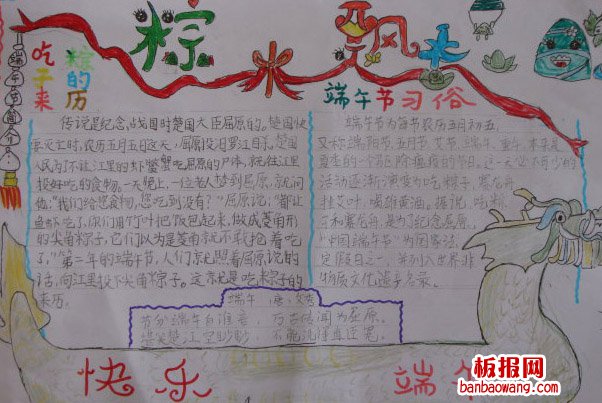 粽飘香
吃粽子的来历
端午节习俗
端午节简介
传说是纪念战国时楚国大臣屈原的。楚国快
要灭亡时，农历五月五日这天，屈原投汨罗江自尽，楚国
人民为了不让江里的虾蟹鳖吃屈原的尸体，就往江里
投好吃的食物。一天晚上，一位老人梦到屈原，就问
他："我们给您食物，您吃到没有？"屈原说："都让
鱼虾吃了，你们用竹叶把饭包起来，做成菱角形
的尖角粽子，它们以为是菱角就不敢抢着吃
了。"第二年的端午节，人们就照着屈原说的
话，向江里投下尖角粽子。这就是吃粽子的
来历。
端午节为每节农历五月初五，
又称端阳节、五月节、
夏季的一个驱除瘟疫的节日。
活动逐渐演变为吃粽子，赛龙舟，
挂艾叶，喝雄黄酒。据说，吃粽
子和赛龙舟，是为了纪念屈原，
"中国端午节"为国家法
定假日之一，并列入世界非
物质文化遗产名录。
端午 唐·文秀
节分端午自谁言，万古传闻为屈原。
堪笑楚江空渺渺，不能洗得直臣冤。
快乐端午
板报网
banbaowang.com